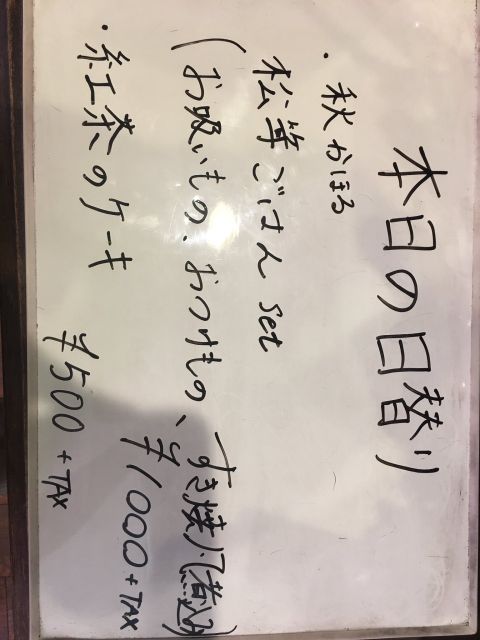 本日の日替り
・秋かほる
松茸ごはん set
(お吸いもの、おつけもの、すき焼風煮込み)
¥1000+TAX
・紅茶のケーキ
¥500+TAX